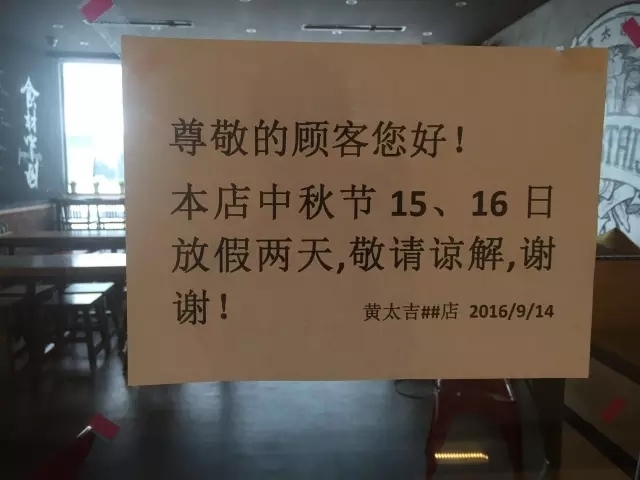 尊敬的顾客您好！
本店中秋节 15、16 日
放假两天,敬请谅解,谢
谢！
黄太吉##店 2016/9/14